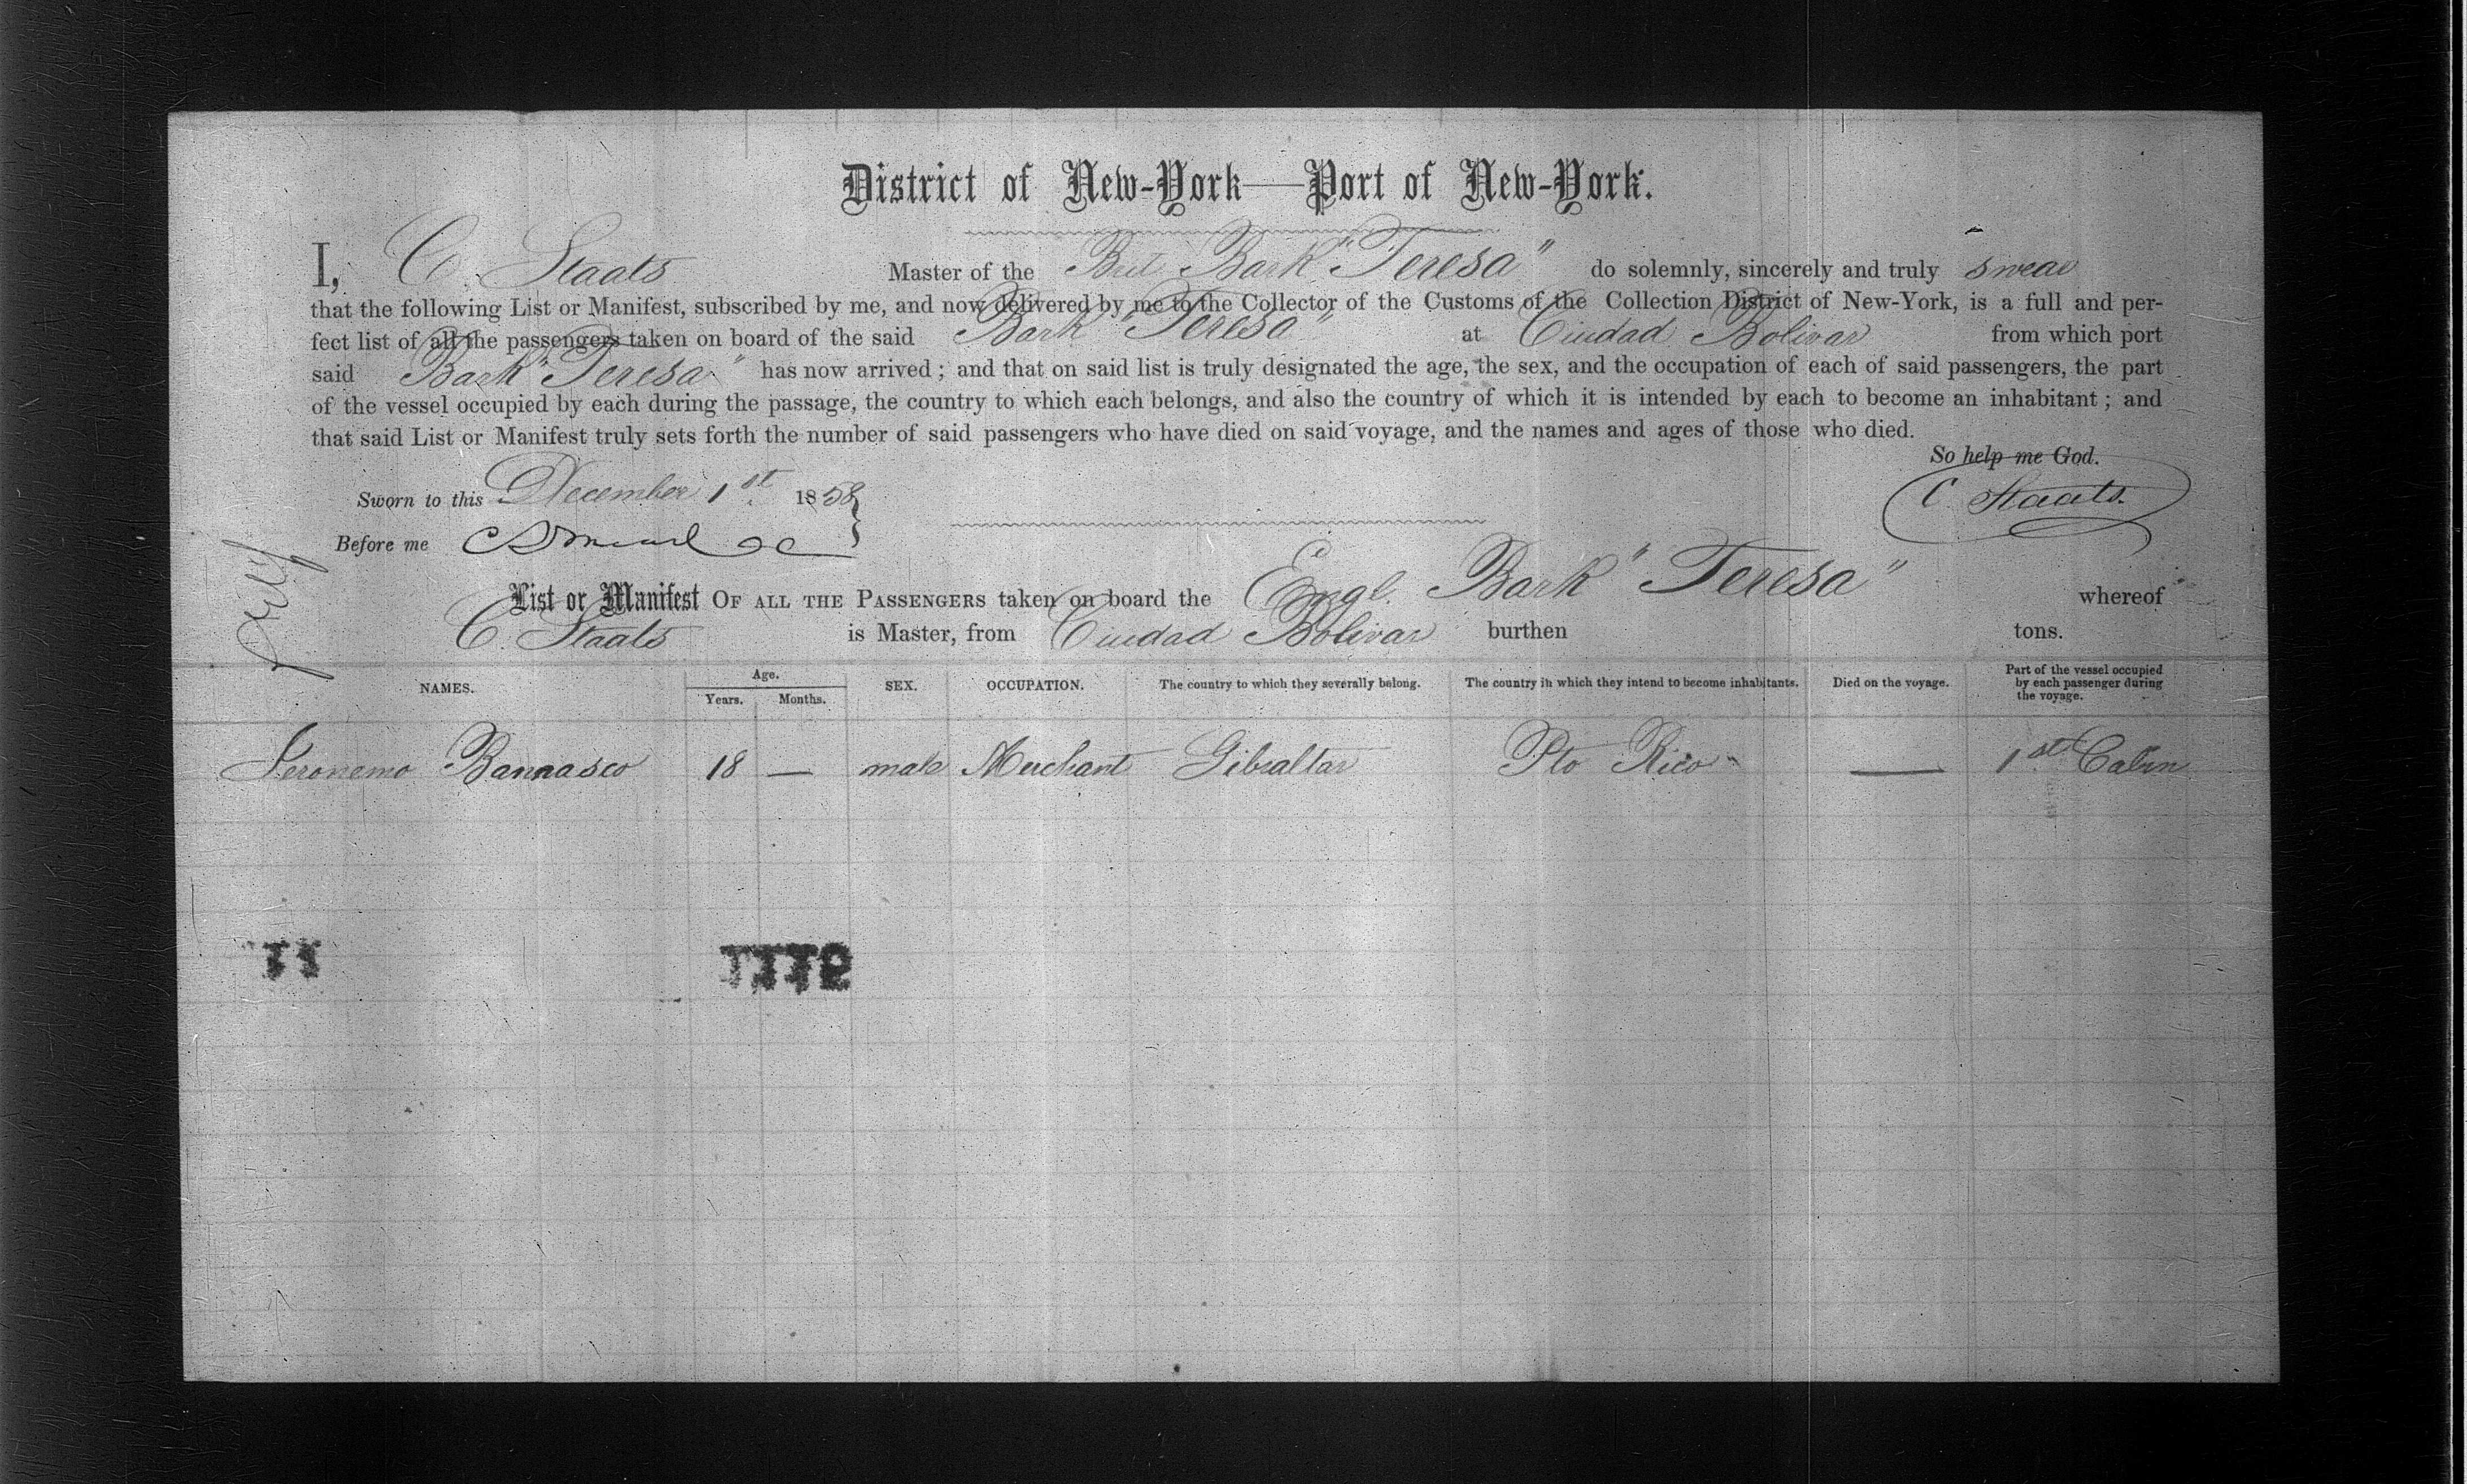 District of New-York—Port of New-York.
I, C. Staats Master of the Brit Bark "Teresa" do solemnly, sincerely and truly swear
that the following List or Manifest, subscribed by me, and now delivered by me to the Collector of the Customs of the Collection District of New-York, is a full and per-
fect list of all the passengers taken on board of the said Bark "Teresa" at Ciudad Bolivar from which port
said Bark "Teresa" has now arrived; and that on said list is truly designated the age, the sex, and the occupation of each of said passengers, the part
of the vessel occupied by each during the passage, the country to which each belongs, and also the country of which it is intended by each to become an inhabitant; and
that said List or Manifest truly sets forth the number of said passengers who have died on said voyage, and the names and ages of those who died.
So help me God.
Sworn to this December 1st. 1858 C. Staats.
Before me
List or Manifest OF ALL THE PASSENGERS taken on board the Engl. Bark "Teresa" whereof
C. Staats is Master, from Ciudad Bolivar burthen tons.
NAMES. Age. Years. Months. SEX. OCCUPATION. The country to which they severally belong. The country in which they intend to become inhabitants. Died on the voyage. Part of the vessel occupied by each passenger during the voyage.
Jeronemo 18 — male Merchant Gibraltar Pto Rico — 1st Cabin
11 1116